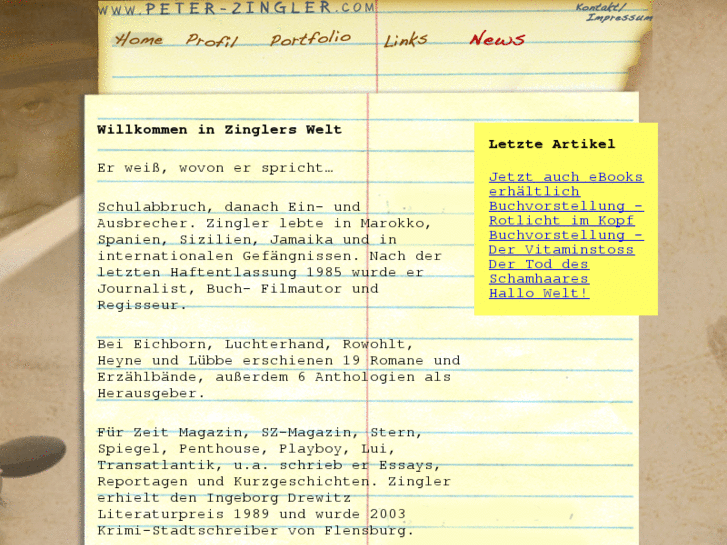 www.PETER-ZINGLER.com
Kontakt/
Impressum
Home Profil Portfolio Links News
Willkommen in Zinglers Welt
Er weiß, wovon er spricht…
Schulabbruch, danach Ein- und
Ausbrecher. Zingler lebte in Marokko,
Spanien, Sizilien, Jamaika und in
internationalen Gefängnissen. Nach der
letzten Haftentlassung 1985 wurde er
Journalist, Buch- Filmautor und
Regisseur.
Bei Eichborn, Luchterhand, Rowohlt,
Heyne und Lübbe erschienen 19 Romane und
Erzählbände, außerdem 6 Anthologien als
Herausgeber.
Für Zeit Magazin, SZ-Magazin, Stern,
Spiegel, Penthouse, Playboy, Lui,
Transatlantik, u.a. schrieb er Essays,
Reportagen und Kurzgeschichten. Zingler
erhielt den Ingeborg Drewitz
Literaturpreis 1989 und wurde 2003
Krimi-Stadtschreiber von Flensburg.
Letzte Artikel
Jetzt auch eBooks
erhältlich
Buchvorstellung -
Rotlicht im Kopf
Buchvorstellung -
Der Vitaminstoss
Der Tod des
Schamhaares
Hallo Welt!